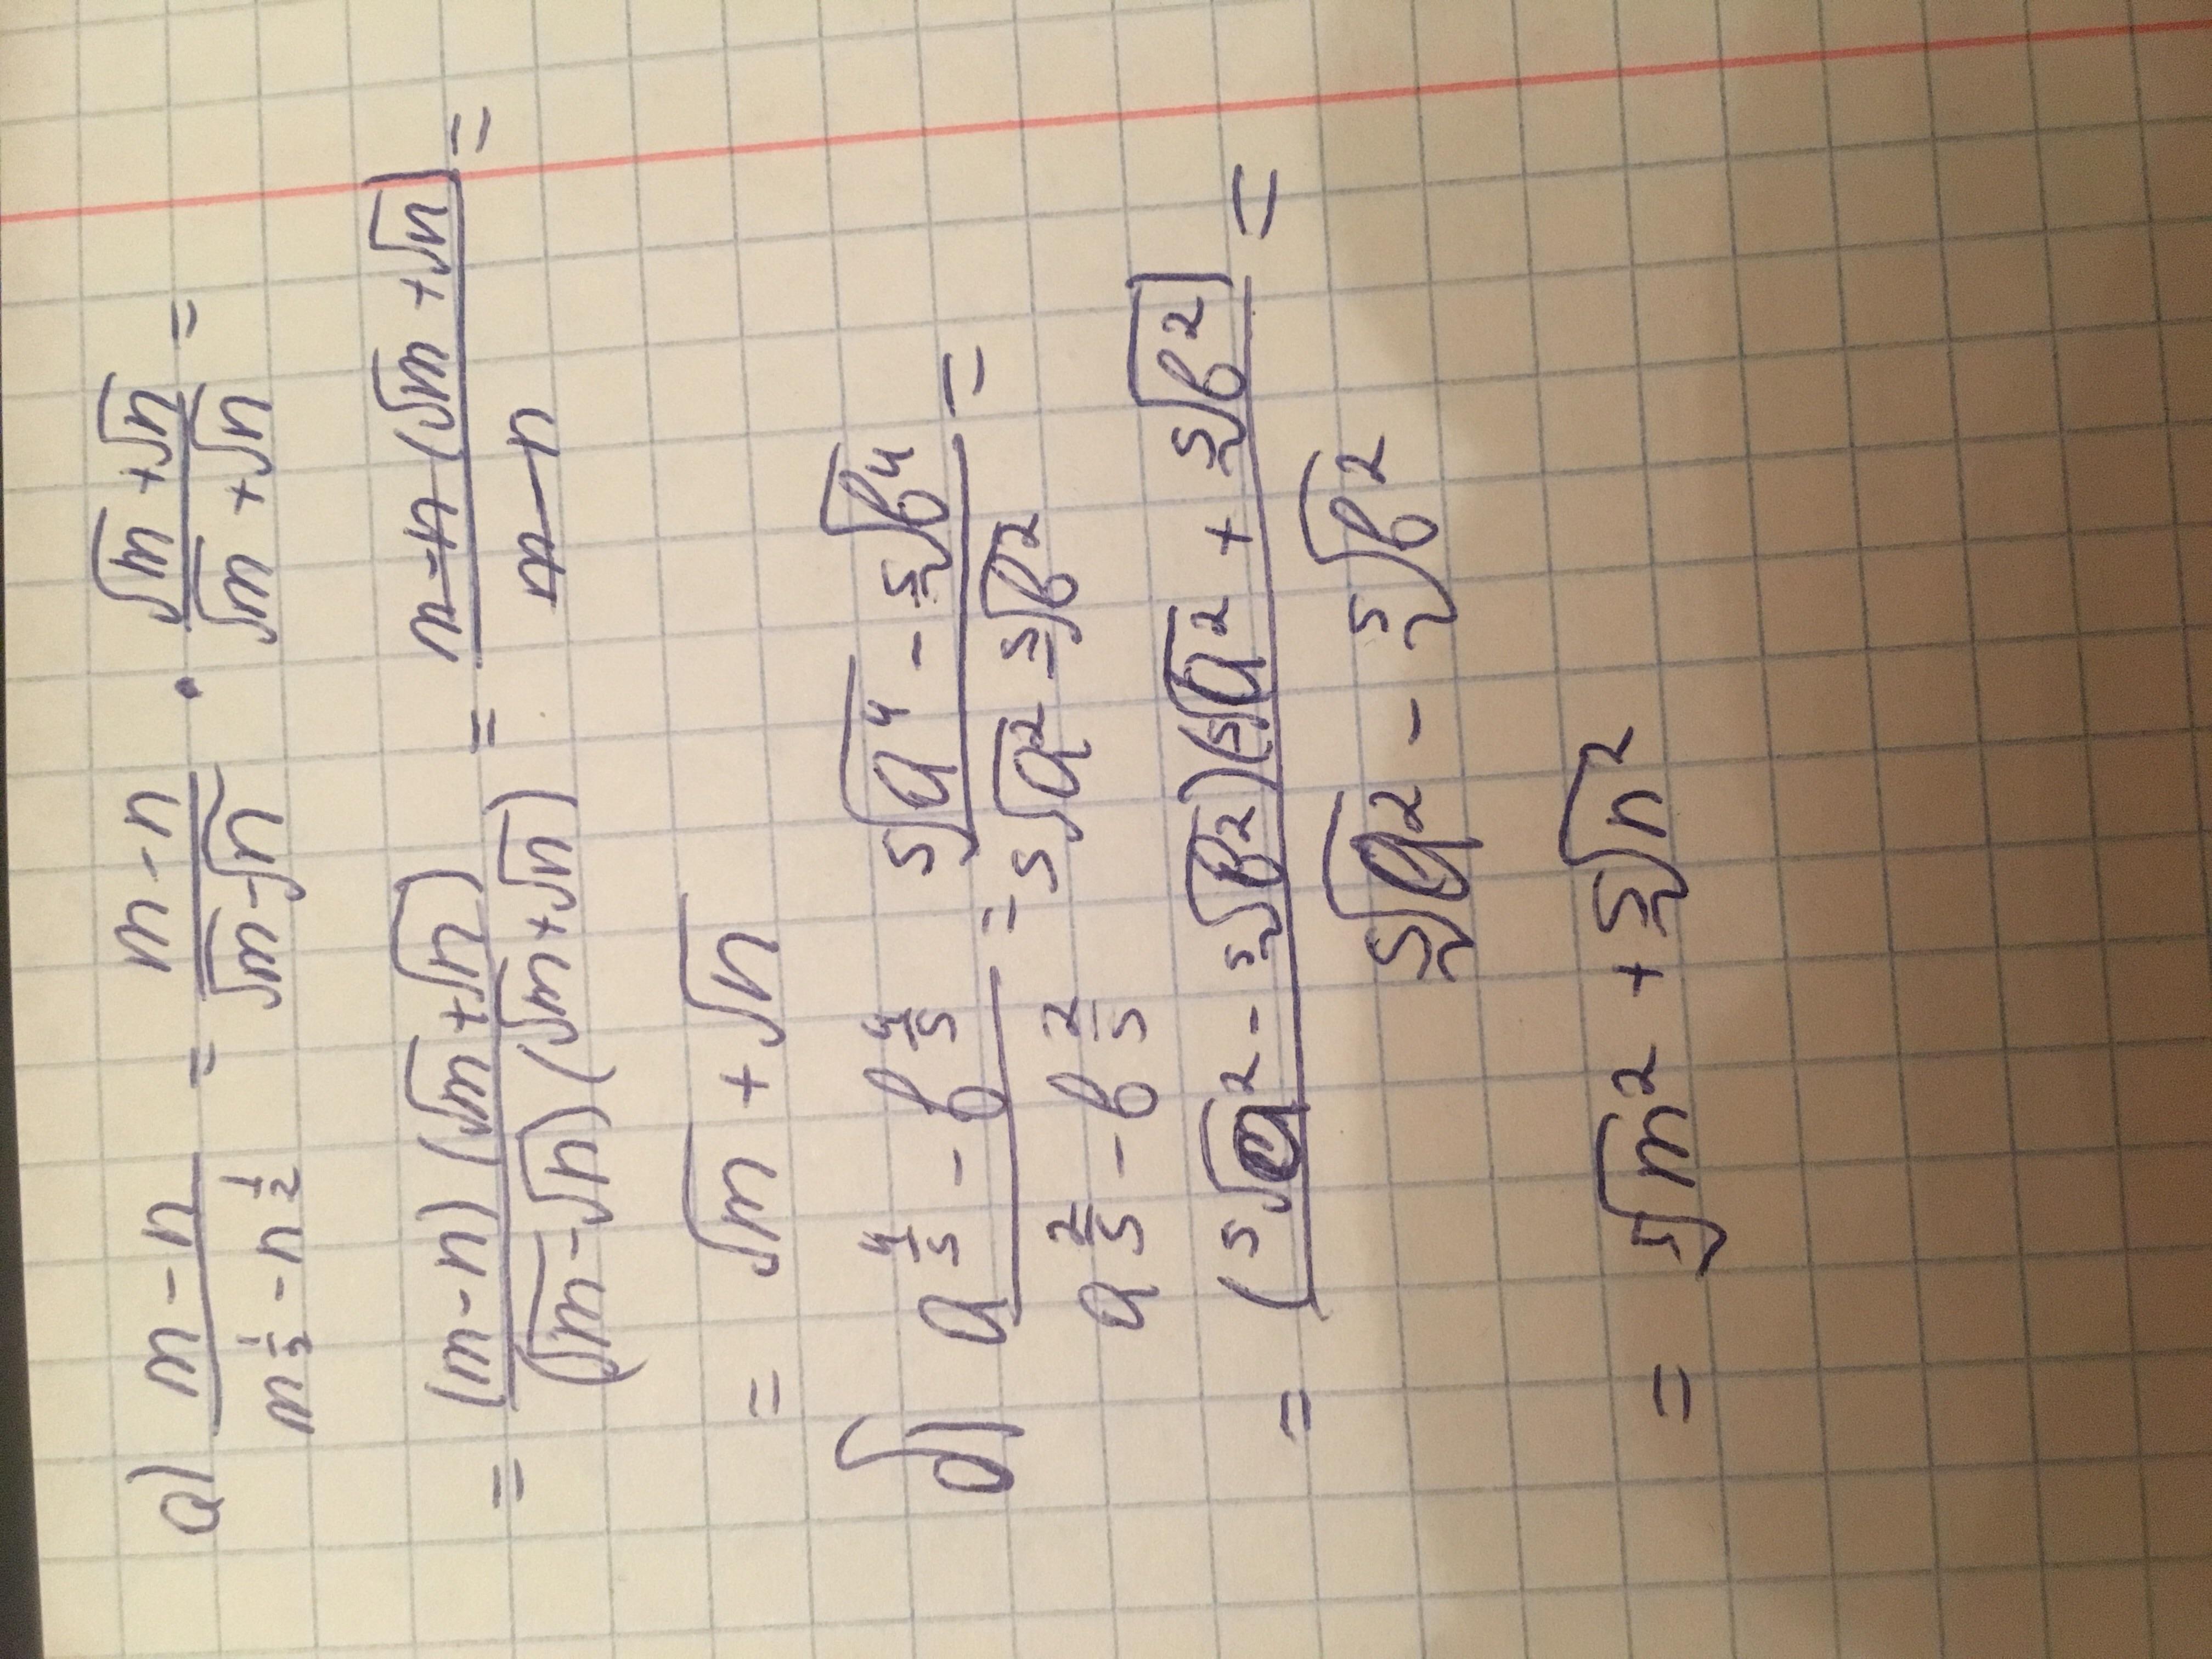 а) (m - n)/(m^(1/2) - n^(1/2)) = (m - n)/(√m - √n) · (√m + √n)/(√m + √n) =
= ((m - n)(√m + √n))/((√m - √n)(√m + √n)) = (m - n (√m + √n))/(m - n) =
= √m + √n
б) (a^(4/5) - b^(4/5))/(a^(2/5) - b^(2/5)) = (⁵√a⁴ - ⁵√b⁴)/(⁵√a² - ⁵√b²) =
= ((⁵√a² - ⁵√b²)(⁵√a² + ⁵√b²))/(⁵√a² - ⁵√b²) =
= ⁵√m² + ⁵√n²